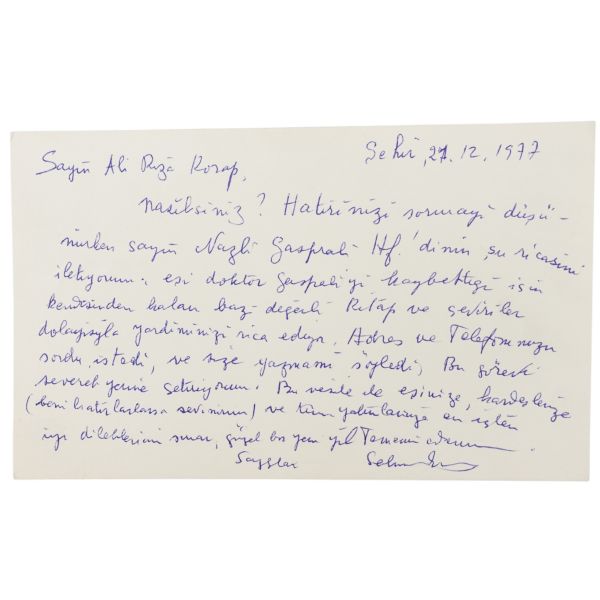 Şehir, 21.12.1977
Sayın Ali Rıza Korap,
Nasılsınız? Hatırınızı sormayı düşü-
nürken sayın Nazlı Gaspralı Hf.'dinin şu ricasini
iletiyorum: eşi doktor Gaspralı'yi kaybettiği için
kendisinden kalan bazı değerli kitap ve çeviriler
dolayısıyla yardımınızı rica ediyor. Adres ve Telefonunuzu
sordu, istedi, ve size yazmamı söyledi, Bu görevi
severek yerine getiriyorum. Bu vesile ile eşinize, kardeşlerinize
(beni hatırlarlarsa sevinirim) ve tüm yakınlarınıza en içten
iyi dileklerimi sunar, güzel bir yeni yıl Temenni ederim.
Saygılar